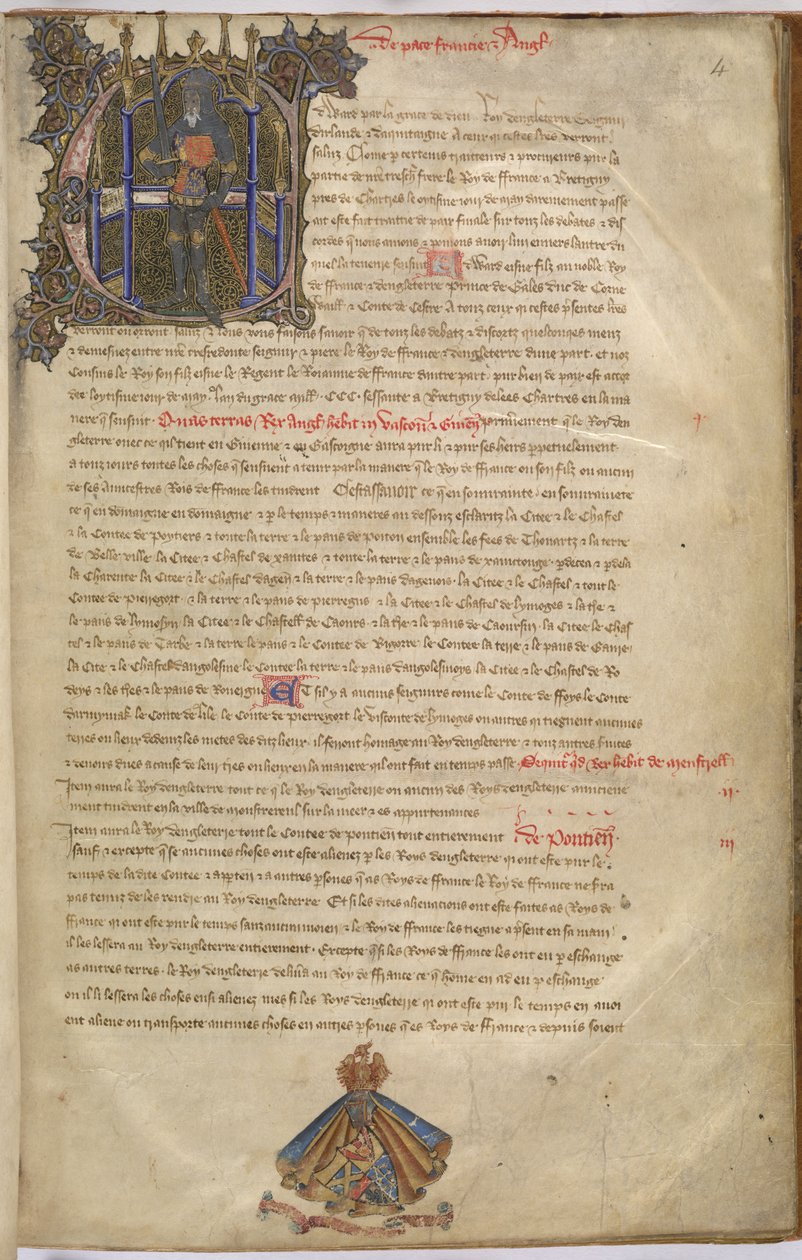 De pace francie & Angl
4
dward par la grace de dieu Roy dengleterre Seignur
dirlande & daquitaigne A ceux qi cestes lres verront
saluz Come p certeins traiteurs & procureurs pur la
partie de nre tresch frere le Roy de ffrance a Bretigny
pres de Chartres le oytisme iour de may darreinement passe
ait este fait traitie de pair finale sur touz les debates & dis
cordes q nous auions & pouions auoir lun enuers lautre du
quel la tenure sensuit Edward eisne filz au noble Roy
de ffrance & dengleterre Prince de Gales duc de Corne
waill & Conte de Cestre A touz ceux qi cestes psentes lres
verront ou orront saluz & Nous vous faisons sauoir q de touz les debatz & discortz quelconqes meuz
& demesnez entre nre tresredoute seignur & piere le Roy de ffrance & dengleterre dune part et noz
Cousins le Roy son filz eisne le Regent le Roiaume de ffrance dautre part pur bien de pair est accor
dee loytisme iour de may lan du grace mill CCC sessante a Bretigny delees Chartres en la ma
nere q sensuit Quas terras Rex Angl hebit in Vascon & Guien Primerement q le Roy den
gleterre ouec ce qil tient en Guienne & en Gascoigne aura pur li & pur ses heirs ppetuelement
a touz iours toutes les choses q sensuent a tenir par la manere q le Roy de ffrance ou son filz ou aucun
de ses Auncestres Rois de ffrance les tindrent Cestassauoir ce q en souuerainte en souuerainete
ce q en domaigne en domaigne & p le temps & maneres au dessouz esclariz la Citee & le Chastel
& la Contee de Poytiers & toute la terre & le pais de Poitou ensemble les fees de Thouartz & la terre
de Belle ville la Citee & Chastel de xantes & toute la terre & le pais de xanctonge pdecea & pdela
la Charente la Citee & le Chastel dagen & la terre & le pais dagenois la Citee & le Chastel & tout le
Contee de Pierregort & la terre & le pais de Pierregus & la Citee & le Chastel de lymoges & la tre &
le pais de lymosyn la Citee & le Chastell de Caours & la tre & le pais de Caoursin la Citee le Chas
tel & le pais de Tarbe & la terre le pais & le Contee de Bigorre le Contee la terre & le pais de Gaure
la Cite & le Chastel dangolesme le Contee la terre & le pais dangolesmoys la Citee & le Chastel de Ro
deys & les tres & le pais de Roueigne Et sil y a aucuns seignurs come le Conte de ffoys le Conte
darmynak le Conte de lile le Conte de Pierregort le visconte de lymoges ou autres qi tiegnent aucunes
terres ou lieux dedeinz les metes des ditz lieux il ferront homage au Roy dengleterre & touz autres suites
& deuoirs dues a cause de leur tres ou lieux en la manere qil ont fait en temps passe Sequit qd Rex hebit de Menstrell
Item aura le Roy dengleterre tout ce q le Roy dengleterre ou aucun des Roys dengleterre anciene
ment tindrent en la ville de Monstrereul sur la meer & es appurtenances
ii
Item aura le Roy dengleterre tout le Contee de Pontieu tout entierement De Pontieu
iii
sauf & excepte q se aucunes choses ont este alienez p les Roys dengleterre qi ont este pur le
temps de la dite Contee & appten & a autres psones q as Roys de ffrance le Roy de ffrance ne sra
pas tenuz de les rendre au Roy dengleterre Et si les dites alienacions ont este faites as Roys de
ffrance qi ont este pur le temps sanz aucun moien & le Roy de ffrance les tiegne a psent en sa main
il les lessera au Roy dengleterre entierement Excepte q si les Roys de ffrance les ont eu p eschange
as autres terres le Roy dengleterre deliura au Roy de ffrance ce q home en ad eu p eschange
ou il li lessera les choses ensi alienez mes si les Roys dengleterre qi ont este pur le temps en auoi
ent aliene ou transporte aucunes choses en autres psones q es Roys de ffrance & depuis soient